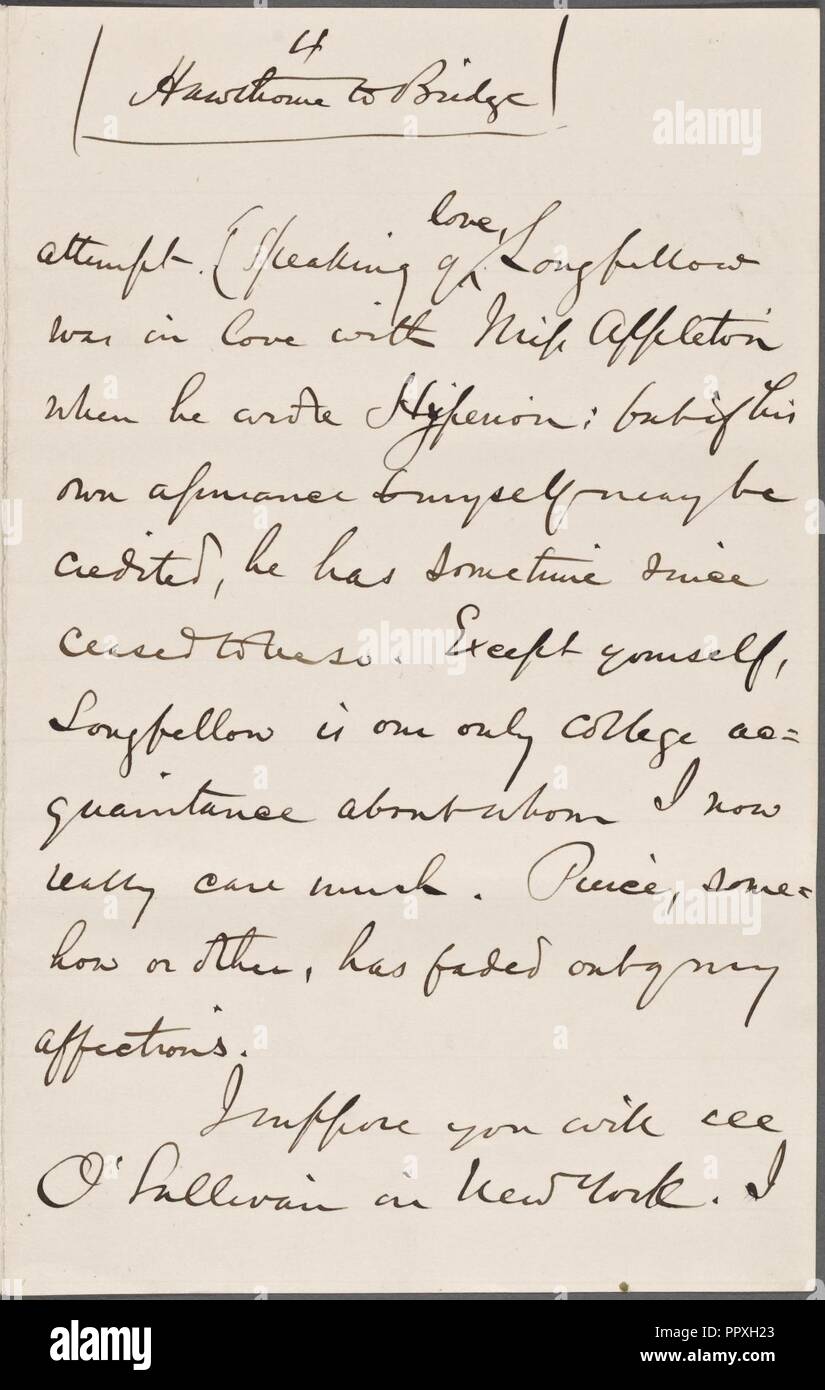 4
Hawthorne to Bridge
attempt. (Speaking of love, Longfellow
was in love with Miss Appleton
when he wrote Hyperion; but if his
own assurance to myself may be
credited, he has sometime since
ceased to be so. Except yourself,
Longfellow is our only college ac=
quaintance about whom I now
really care much. Pierce, some=
how or other, has faded out of my
affections.
I suppose you will see
O'Sullivan in New York. I
alamy
alamy
alamy
alamy
Image ID: PPXH23
www.alamy.com